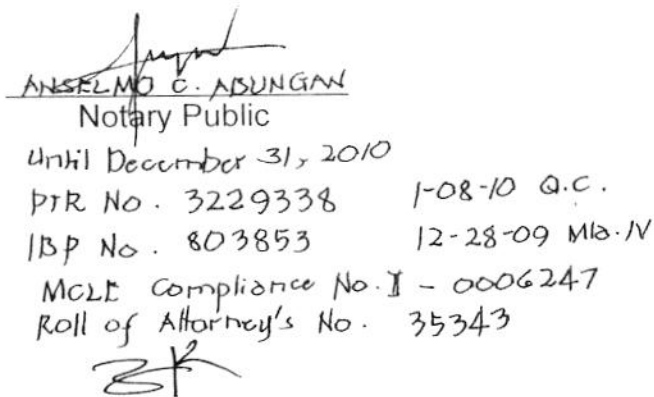 ANSELMO C. ABUNGAN
Notary Public
Until December 31, 2010
PTR No. 3229338 1-08-10 Q.C.
IBP No. 803853 12-28-09 Mla. IV
MCLE Compliance No. I - 0006247
Roll of Attorney's No. 35343